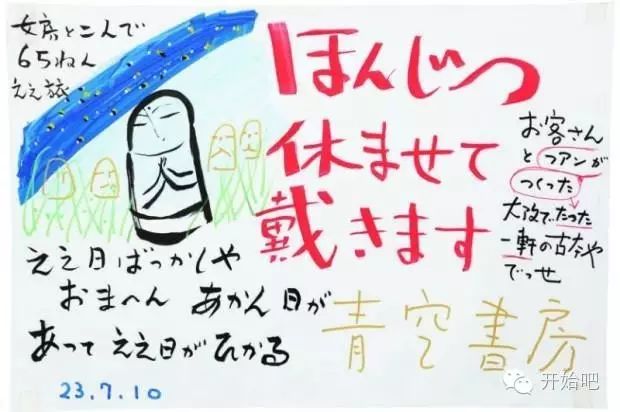 女房と二人で
65ねん
ええ旅
ほんじつ
休ませて
戴きます
お客さん
と フアンが
つくった
大阪で たった
一軒の古本や
でっせ
ええ日ばっかしや
おまへん あかん日が
あって ええ日がひかる
青空書房
23.7.10
开始吧